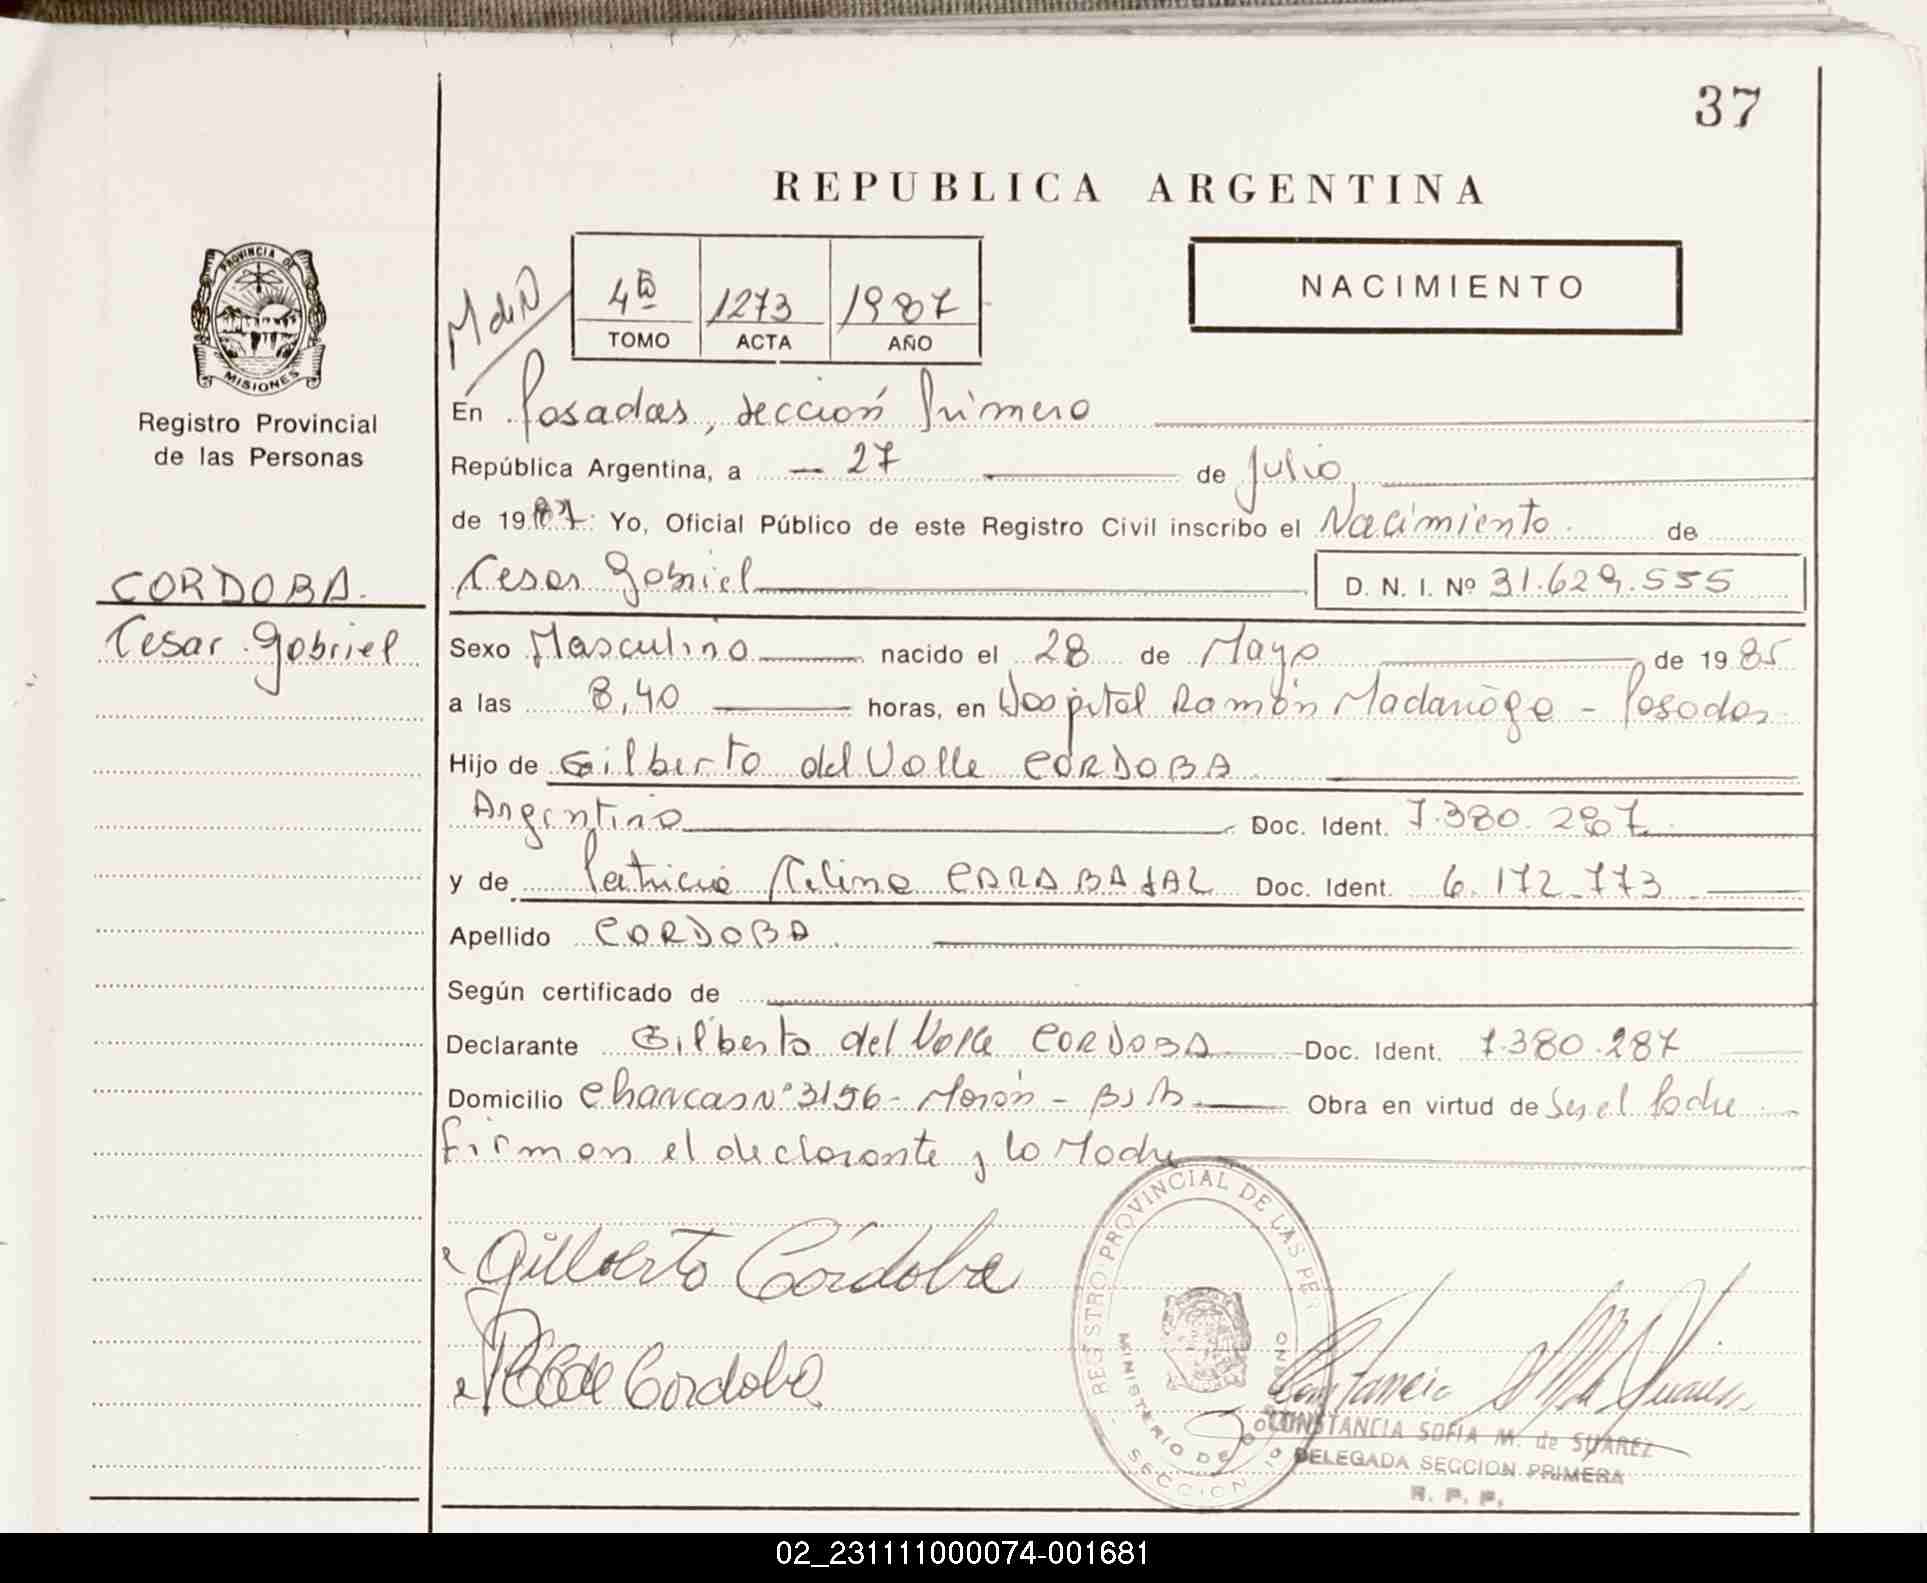 37
REPUBLICA ARGENTINA
PROVINCIA DE
MISIONES
Registro Provincial
de las Personas
CORDOBA.
Cesar Gabriel
M de N
4to 1273 1987
TOMO ACTA AÑO
NACIMIENTO
En Posadas, Sección Primera
República Argentina, a — 27 de Julio
de 1987. Yo, Oficial Público de este Registro Civil inscribo el Nacimiento de
Cesar Gabriel D. N. I. Nº 31.629.555
Sexo Masculino nacido el 28 de Mayo de 1985
a las 8,40 horas, en Hospital Ramón Madariaga - Posadas
Hijo de Gilberto del Valle CORDOBA
Argentino Doc. Ident. 7.380.287
y de Patricia CARABAJAL Doc. Ident. 6.172.773
Apellido CORDOBA
Según certificado de
Declarante Gilberto del Valle CORDOBA Doc. Ident. 7.380.287
Domicilio Charcas Nº 3156 - Morón - Bs As Obra en virtud de Ser el Padre
firman el declarante y la Madre
Gilberto Córdoba
de Cordoba
REGISTRO PROVINCIAL DE LAS PER
MINISTERIO DE GOBIERNO
SECCION 1a
Constancia M de Suarez
CONSTANCIA SOFIA M. de SUAREZ
DELEGADA SECCION PRIMERA
R. P. P.
02_231111000074-001681